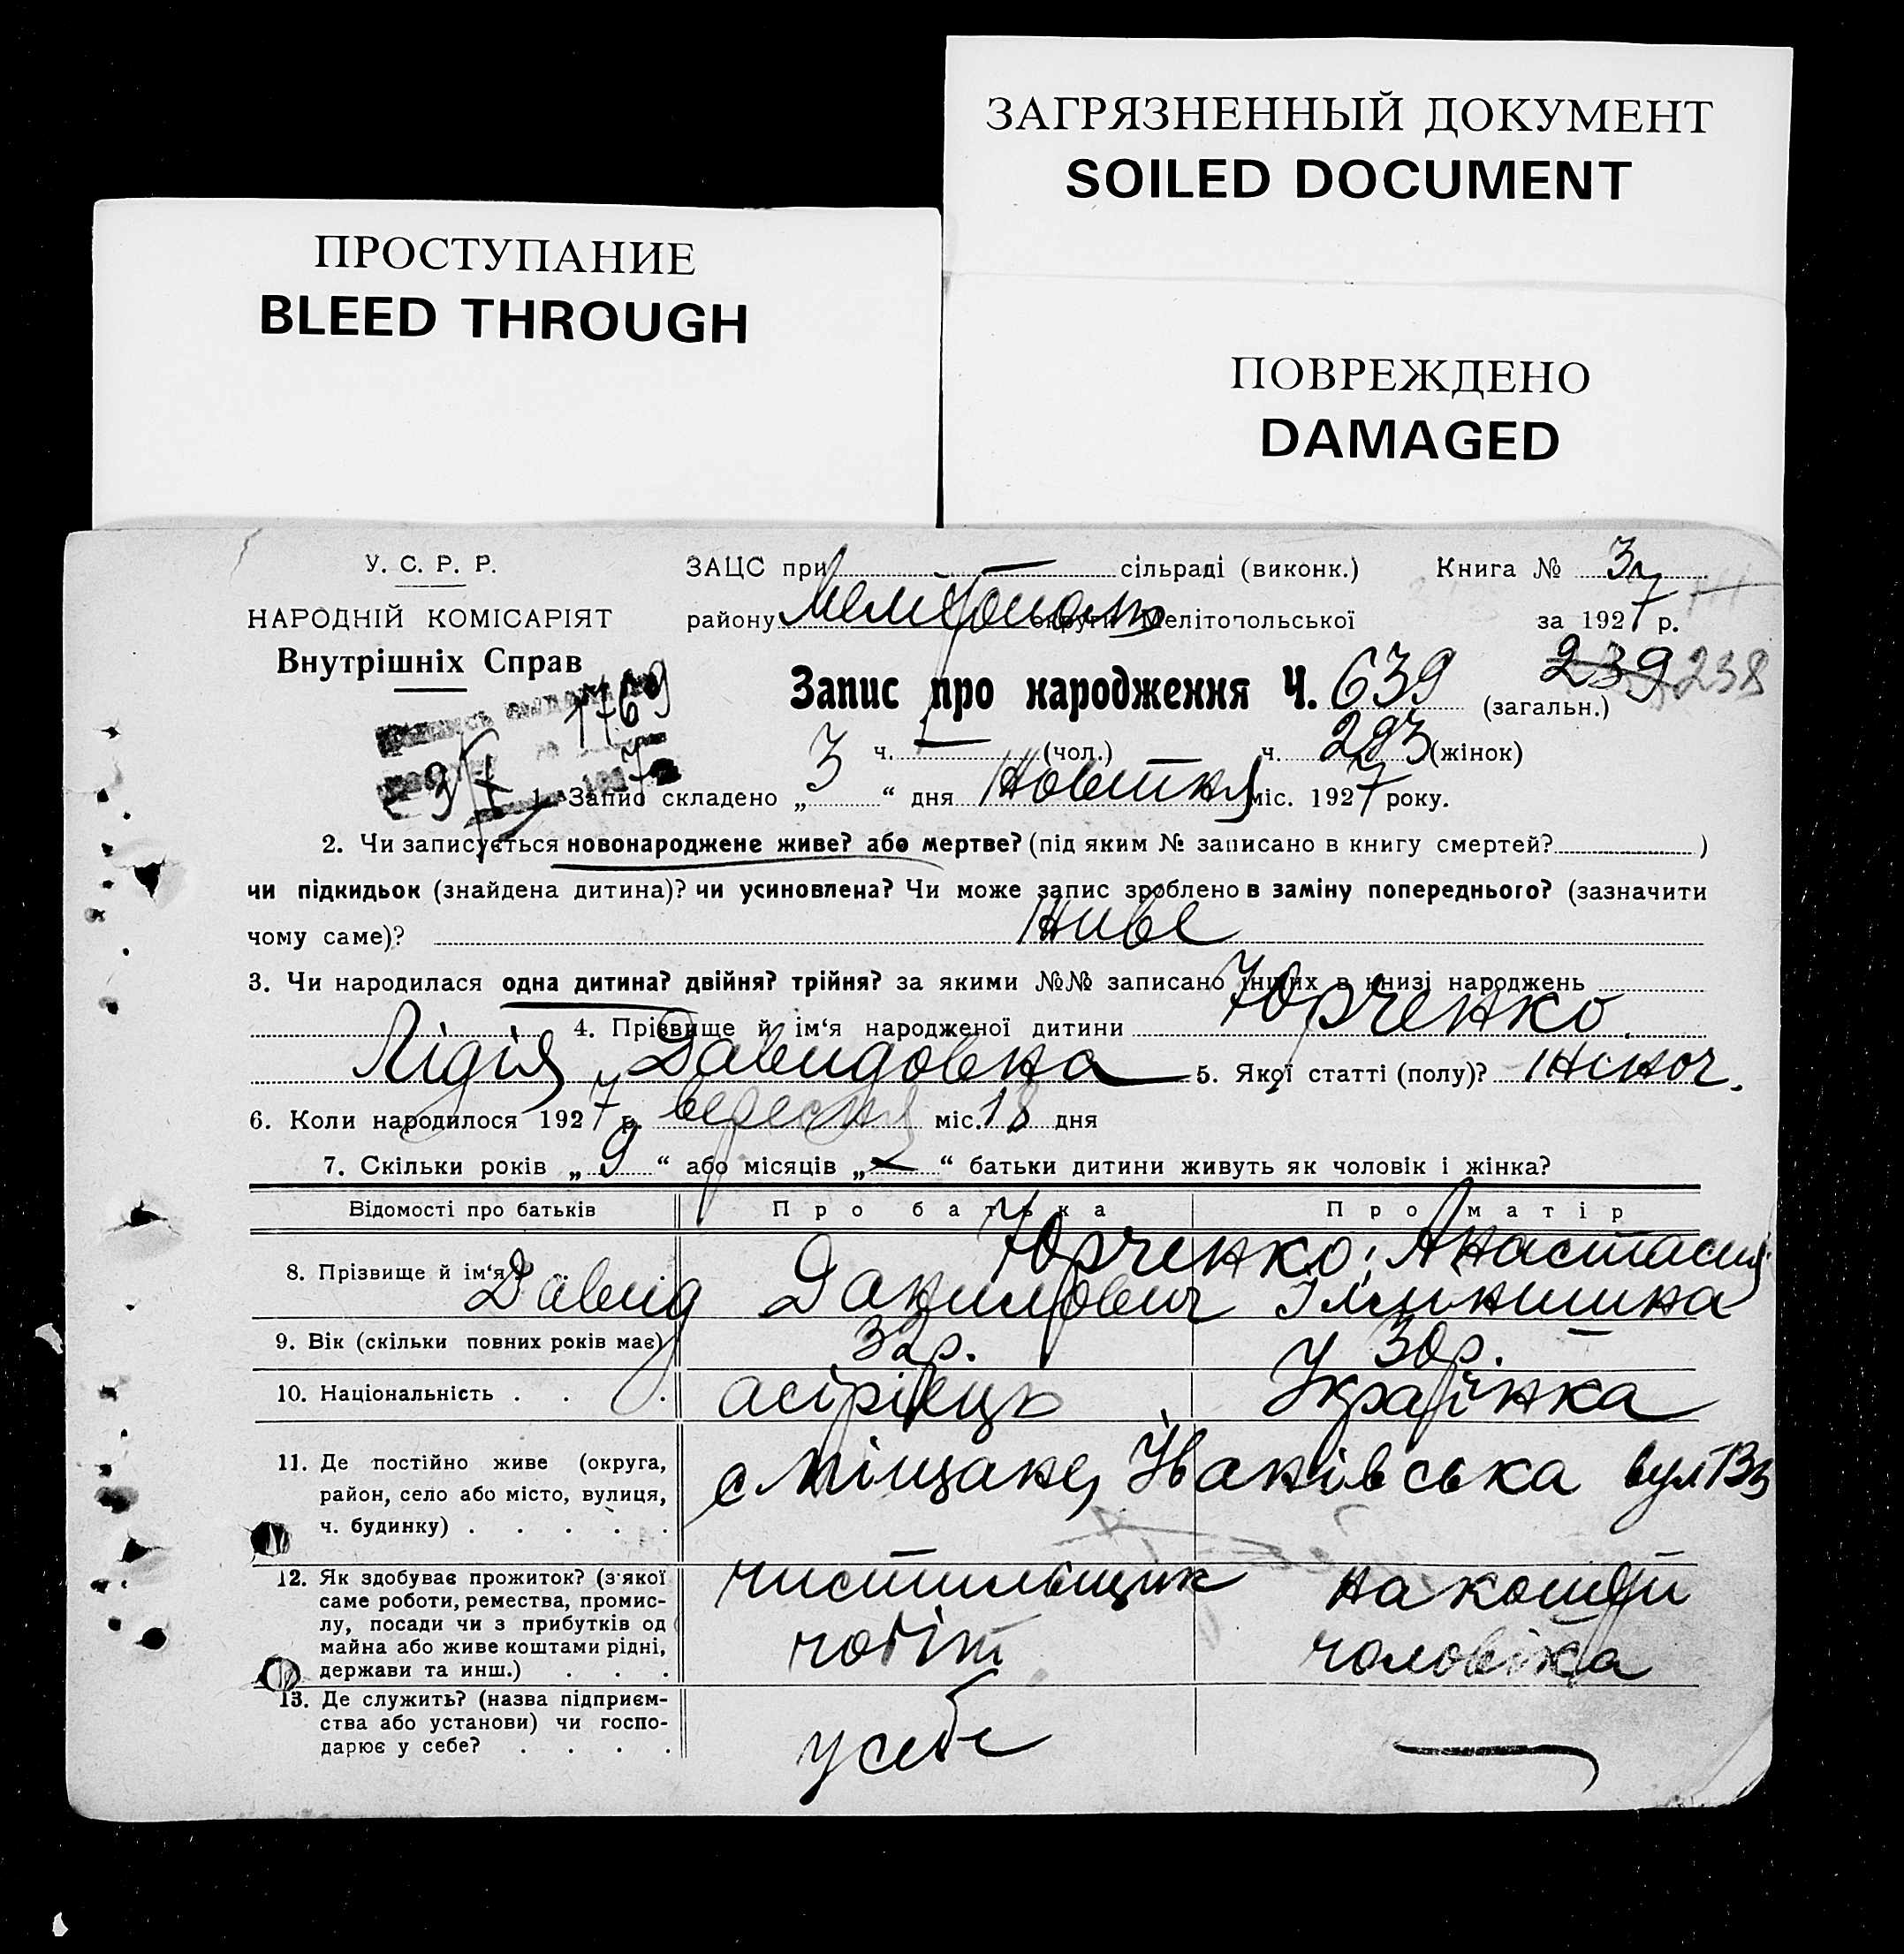 ЗАГРЯЗНЕННЫЙ ДОКУМЕНТ
SOILED DOCUMENT
ПРОСТУПАНИЕ
BLEED THROUGH
ПОВРЕЖДЕНО
DAMAGED
У. С. Р. Р.
НАРОДНІЙ КОМІСАРІЯТ
Внутрішніх Справ
1769
ЗАЦС при сільраді (виконк.) Книга №
району округи Мелітопольської за 1927 р.
Запис про народження Ч. 639 (загальн.) 239 238
ч. — (чол.) ч. 293 (жінок)
1. Запис складено „ 3 “ дня Жовтня міс. 1927 року.
2. Чи записується новонароджене живе? або мертве? (під яким № записано в книгу смертей? )
чи підкидьок (знайдена дитина)? чи усиновлена? Чи може запис зроблено в заміну попереднього? (зазначити
чому саме)? Живе
3. Чи народилася одна дитина? двійня? трійня? за якими №№ записано інших в книзі народжень
4. Прізвище й ім‘я народженої дитини Юрченко
Лідія Давидовна 5. Якої статті (полу)? жіноч.
6. Коли народилося 1927 р. вересня міс. 18 дня
7. Скільки років „ 9 “ або місяців „ — “ батьки дитини живуть як чоловік і жінка?
Відомості про батьків Про батька Про матір
8. Прізвище й ім‘я Юрченко Анастасия
Давид Данилович
9. Вік (скільки повних років має) 32 р. 30 р.
10. Національність . . . асірієць Українка
11. Де постійно живе (округа,
район, село або місто, вулиця,
ч. будинку) . . . . .
с Міщане, Іванівська вул
12. Як здобуває прожиток? (з'якої
саме роботи, ремества, промис-
лу, посади чи з прибутків од
майна або живе коштами рідні,
держави та инш.) . . .
чистильщик чобіт
на кошти чоловіка
13. Де служить? (назва підприєм-
ства або установи) чи госпо-
дарює у себе? . . . .
у себе —